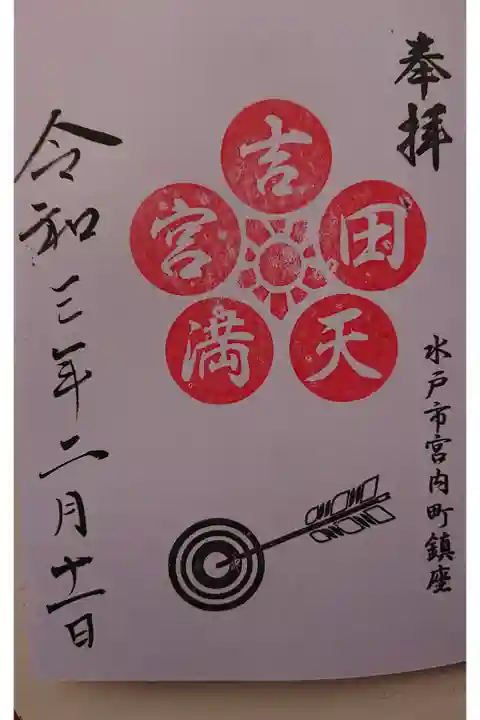 奉拝
水戸市宮内町鎮座
吉田天満宮
令和三年二月十一日